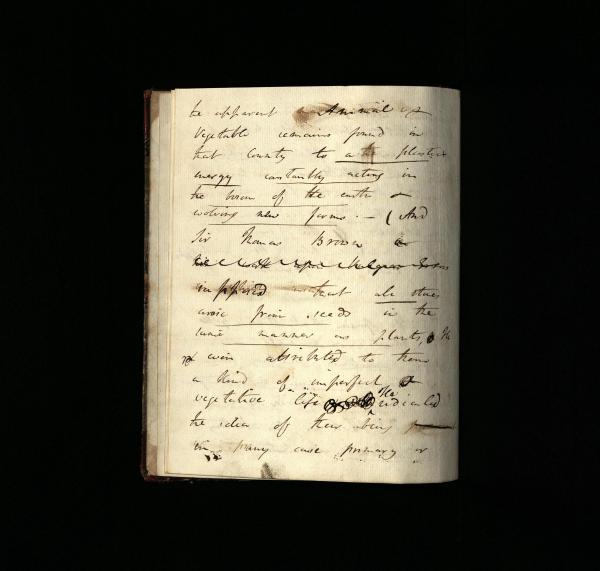 be apparent Animal or
Vegetable remains found in
that County to a the plastic
energy constantly acting in
the bosom of the earth &
evolving new forms. — (And
Sir Thomas Brown
supposed that all stones
arose from seeds in the
same manner as plants, & He
even attributed to them
a kind of imperfect &
vegetative life He ridiculed
the idea of their being
in many case primary or